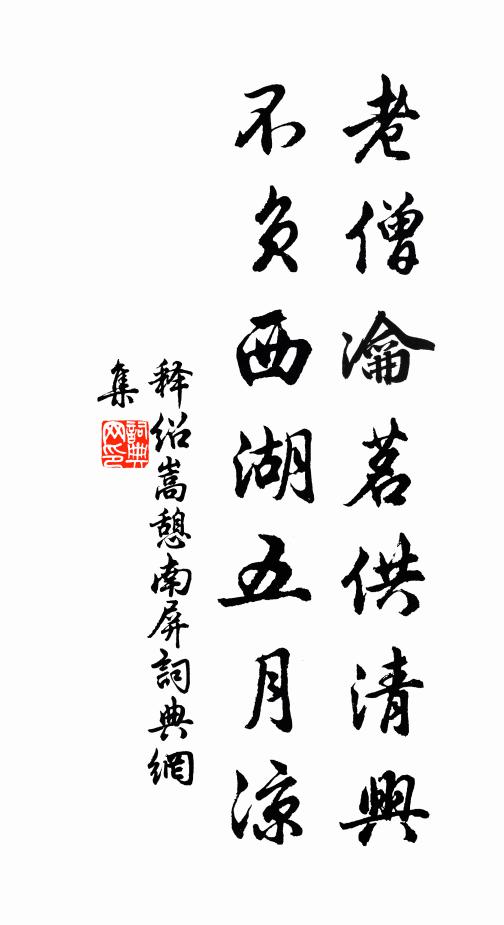 老僧瀹茗供清興
不負西湖五月凉
释绍嵩憩南屏詞典網
集
詞典网印